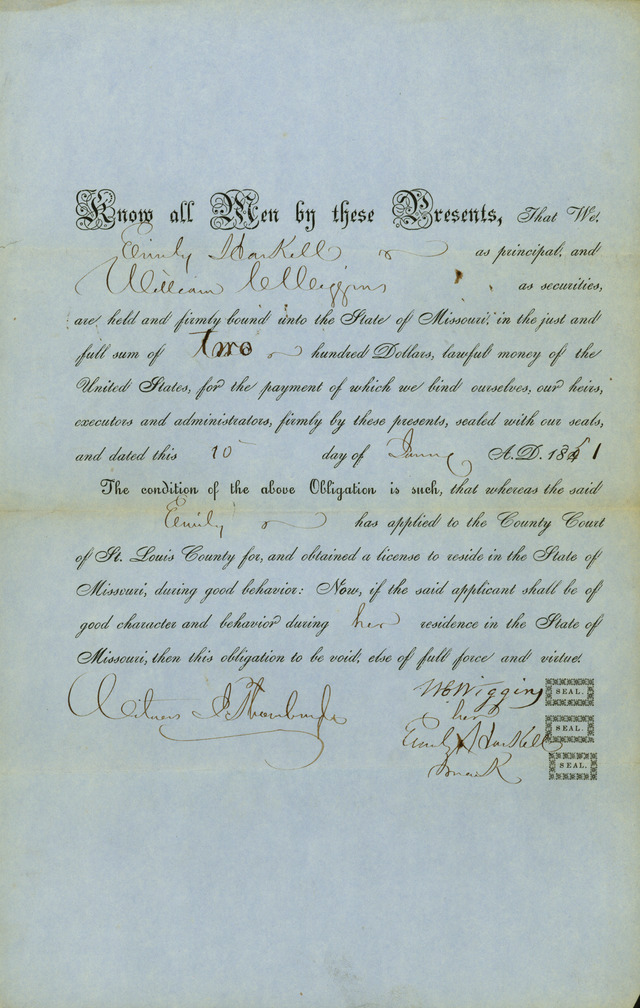 Know all Men by these Presents, That We,
Emily Haskell as principal, and
William C Wiggins as securities,
are held and firmly bound unto the State of Missouri, in the just and
full sum of Two hundred Dollars, lawful money of the
United States, for the payment of which we bind ourselves, our heirs,
executors and administrators, firmly by these presents, sealed with our seals,
and dated this 10 day of A.D. 1851
The condition of the above Obligation is such, that whereas the said
Emily has applied to the County Court
of St. Louis County for, and obtained a license to reside in the State of
Missouri, during good behavior: Now, if the said applicant shall be of
good character and behavior during her residence in the State of
Missouri, then this obligation to be void, else of full force and virtue.
Witness Wiggins SEAL.
her
Emily X Haskell SEAL.
mark SEAL.